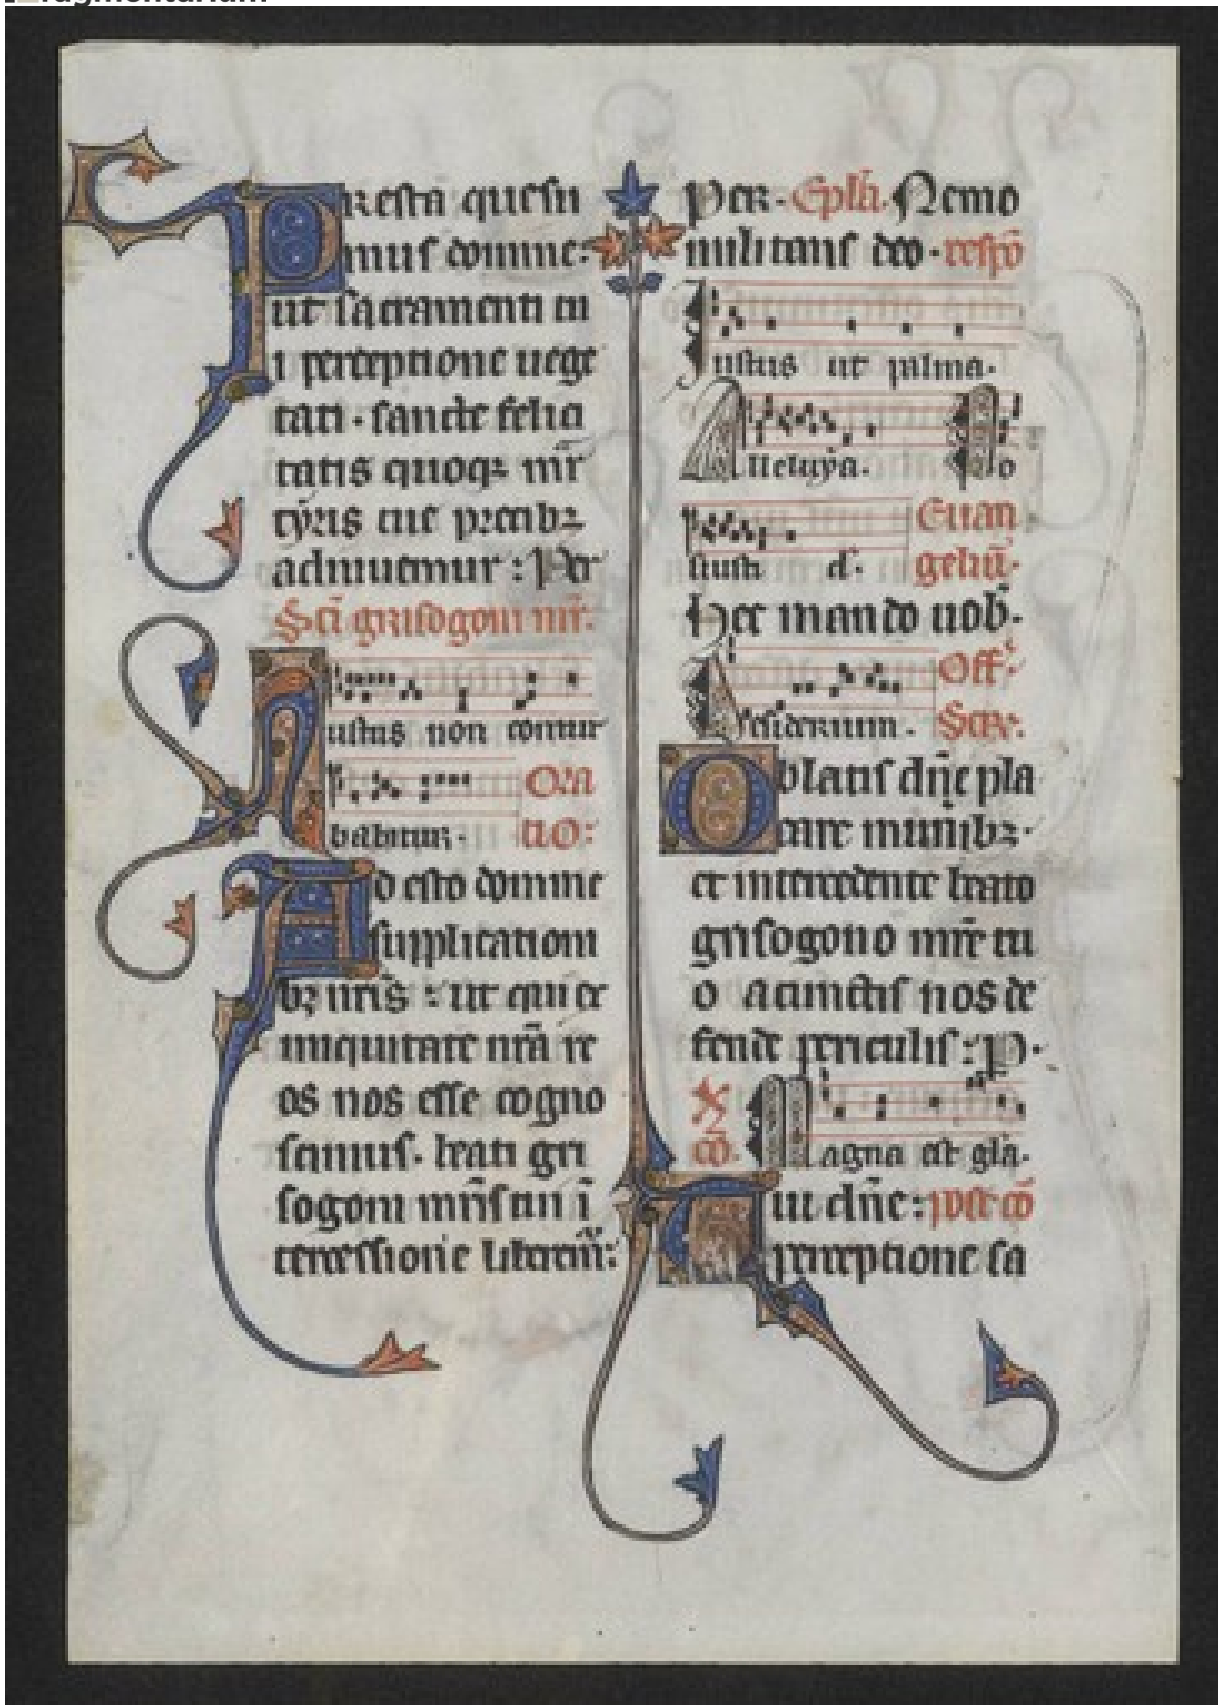 Presta quesu
mus domine:
ut sacramenti tu
i perceptione uege
tati. sancte felici
tatis quoqꝫ mr̄
tyris tue precibꝫ
adiuuemur: Per
Sc̄i grisogoni mr̄.
Iustus non contur
babitur. Ora
tio:
Ad esto domine
supplicationi
bꝫ nr̄is: ut qui ex
iniquitate nr̄a re
os nos esse cogno
scimus. beati gri
sogoni mr̄is tui ī
tercessione liberem̄:
Per. Epl̄a. Nemo
militans deo. respō
Iustus ut palma.
Alleluya. Bo
Euan
iusti d. geliū.
Hec mando uob̄.
Off̄.
Desiderium. Secr̄.
Oblatis dn̄e pla
care munibꝫ.
et intercedente beato
grisogono mr̄e tu
o a cunctis nos de
fende periculis: P.
cō. Magna est gla.
Tui dn̄e: post cō
perceptione sa